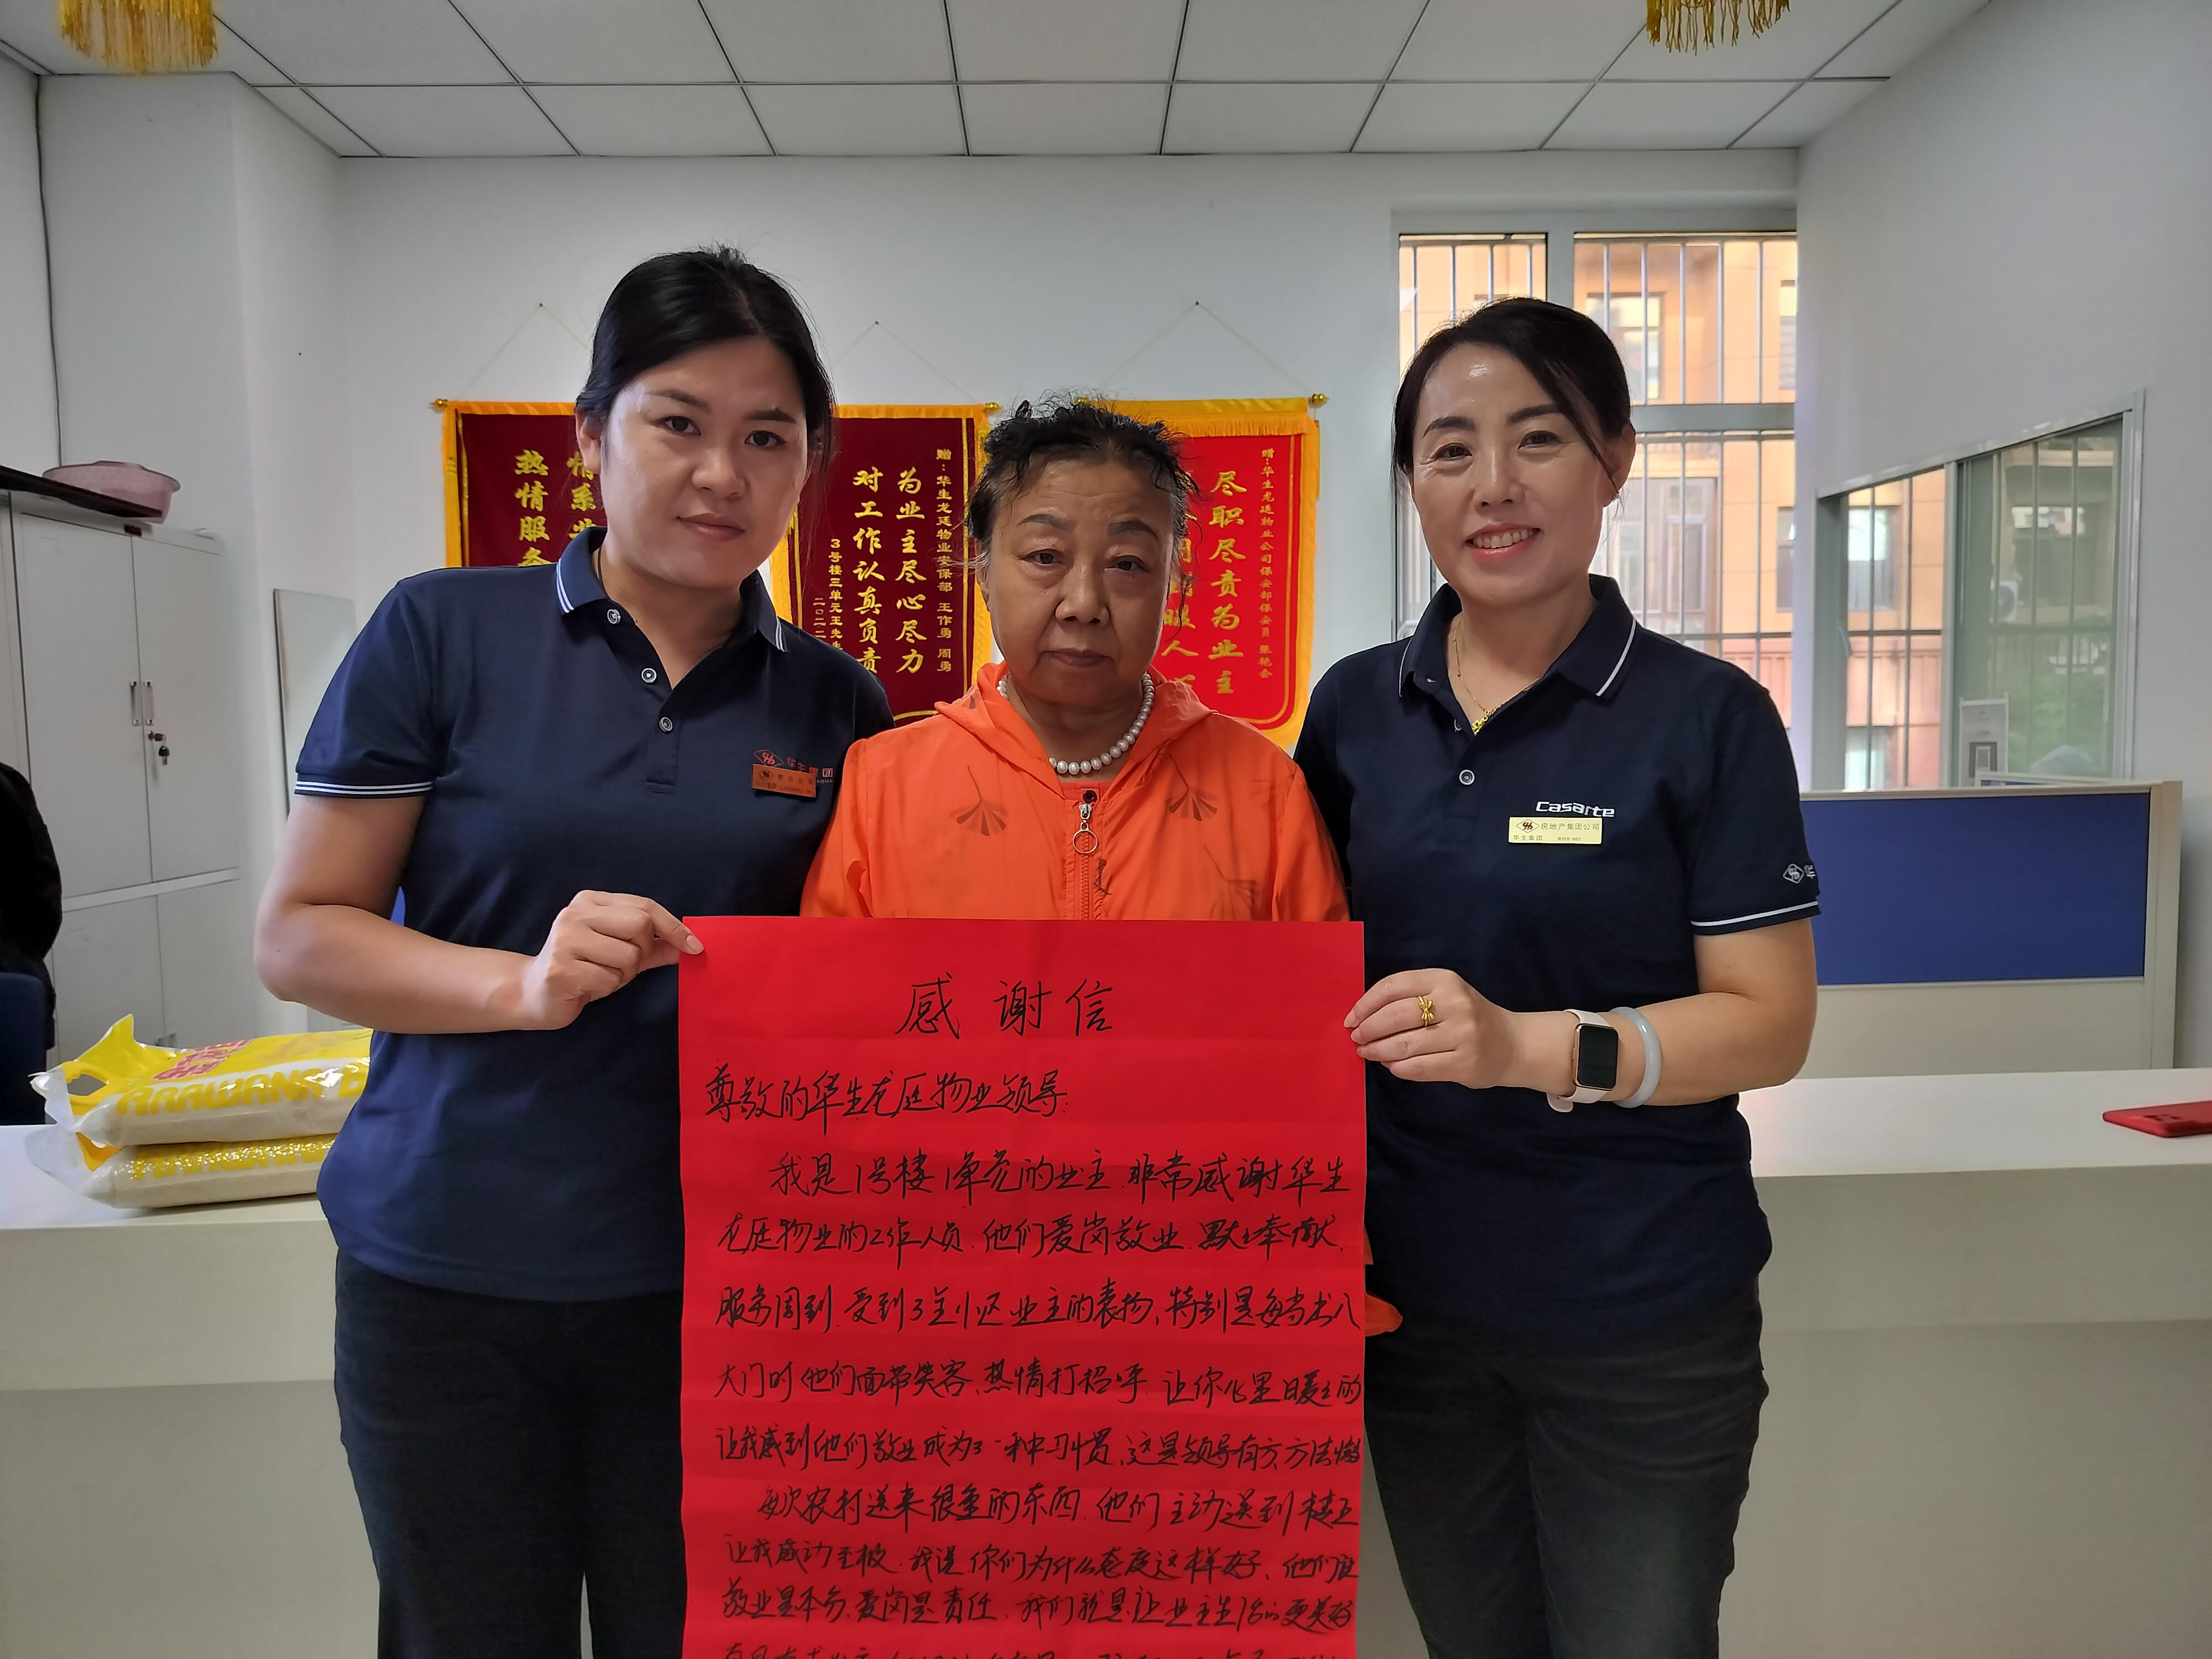 热情服务
情系业
赠：华生龙廷物业安保部 王作勇 周勇
为业主尽心尽力
对工作认真负责
3号楼三单元王先生
二〇二二
赠：华生龙廷物业公司保安部保安员 张艳会
尽职尽责为业主
服人
华生集团
Casarte
房地产集团公司
华生集团
ARAWANA
感谢信
尊敬的华生龙庭物业领导：
我是1号楼1单元的业主.非常感谢华生
龙庭物业的工作人员.他们爱岗敬业.默默奉献.
服务周到.受到了全小区业主的表扬,特别是每当出入
大门时他们面带笑容.热情打招呼 让你心里暖暖的
让我感到他们敬业成为了一种习惯.这是领导有方.方法
每次农村送来很重的东西.他们主动送到楼上
让我感动至极.我说.你们为什么态度这样好.他们说
敬业是本分.爱岗是责任.我们就是让业主生活的更美好